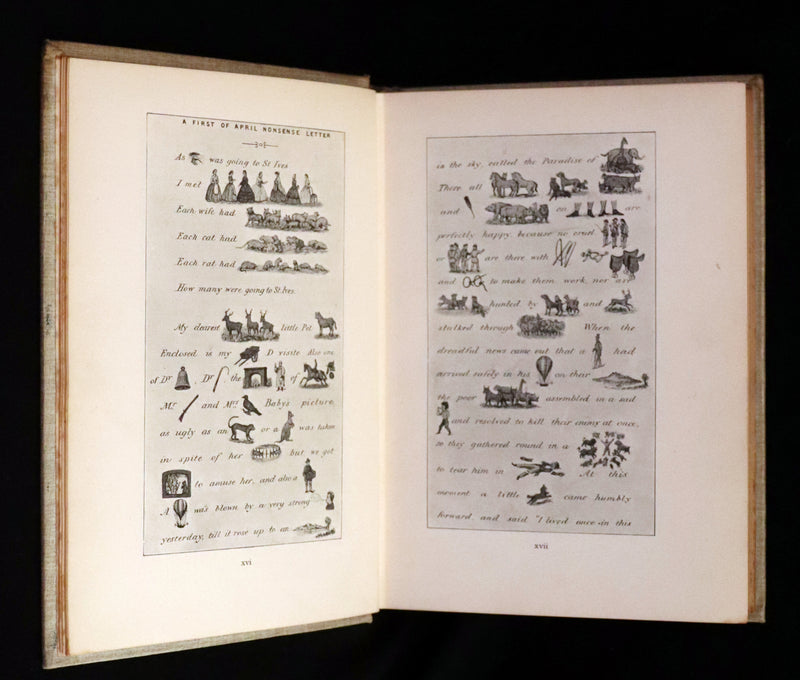 A FIRST OF APRIL NONSENSE LETTER
As was going to St Ives
I met
Each wife had
Each cat had
Each rat had
How many were going to St. Ives.
My dearest little Pet
Enclosed is my D visite Also one
of Dr Dr the of
Mr and Mrs Baby's picture,
as ugly as an or a was taken
in spite of her but we got
to amuse her, and also a
A was blown by a very strong
yesterday, till it rose up to an
xvi
in the sky, called the Paradise of
There all
and on are
perfectly happy, because no cruel
or are there with
and to make them work, nor are
hunted by and
stalked through When the
dreadful news came out that a had
arrived safely in his on their
the poor assembled in a sad
and resolved to kill their enemy at once,
so they gathered round in a
to tear him in At this
moment a little came humbly
forward and said "I lived once in this
xvii